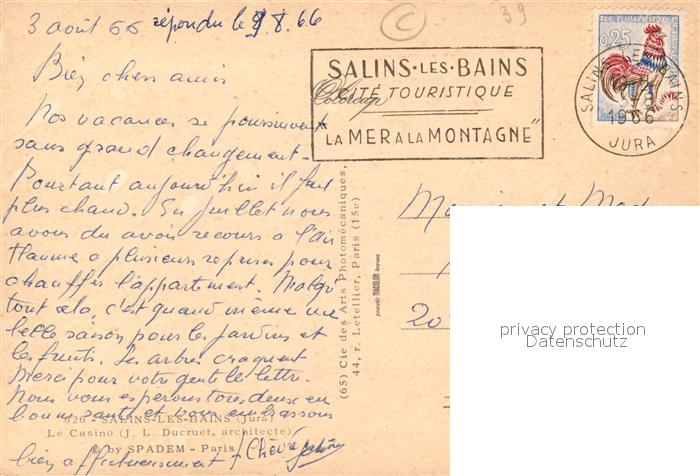 3 août 66 répondu le 9.8.66
39
Bien chers amis
Nos vacances se poursuivent
sans grand changement.
Pourtant aujourd'hui il fait
plus chaud. En Juillet nous
avons du avoir recours à l'air
Flamme a plusieurs reprises pour
chauffer l'appartement. Malgré
tout cela, c'est quand même une
belle saison pour les jardins et
les fruits. Les arbres craquent
Merci pour votre gentille lettre.
Nous vous espérons tous deux en
bonne santé et vous embrassons
bien affectueusement
626 - SALINS-LES-BAINS (Jura)
Le Casino (J. L. Ducruet, architecte)
© by SPADEM - Paris
SALINS·LES·BAINS
CITÉ TOURISTIQUE
"LA MER A LA MONTAGNE"
REPUBLIQUE
0,25
SALINS-LES-BAINS
1966
JURA
(65) Cie des Arts Photomécaniques,
44, r. Letellier, Paris (15e)
Monsieur et Mad
20
privacy protection
Datenschutz